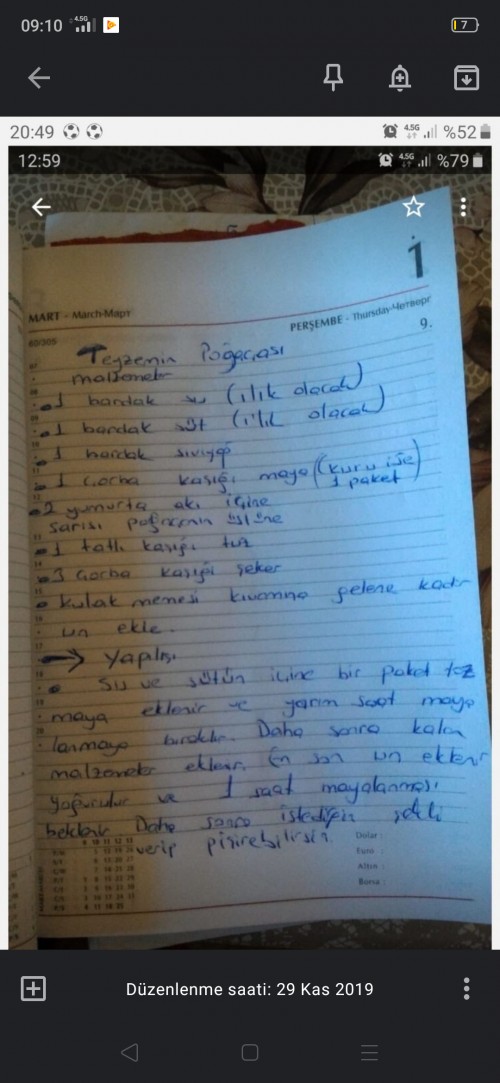 09:10 4.5G 7
20:49 4.5G %52
12:59 4.5G %79
1
MART - March-Март
PERŞEMBE - Thursday-Четверг
60/305
9.
Teyzemin Poğaçası
malzemeler
1 bardak su (ılık olacak)
1 bardak süt (ılık olacak)
1 bardak sıvıyağ
1 çorba kaşığı maya (kuru ise
1 paket)
2 yumurta akı içine
sarısı poğacanın üstüne
1 tatlı kaşığı tuz
3 çorba kaşığı şeker
kulak memesi kıvamına gelene kadar
un ekle.
→ Yapılışı
Su ve sütün içine bir paket toz
maya eklenir ve yarım saat maya
lanmaya bırakılır. Daha sonra kalan
malzemeler eklenir. En son un eklenir
yoğurulur ve 1 saat mayalanması
beklenir. Daha sonra istediğin şekli
verip pişirebilirsin.
Dolar :
Euro :
Altın :
Borsa :
Düzenlenme saati: 29 Kas 2019